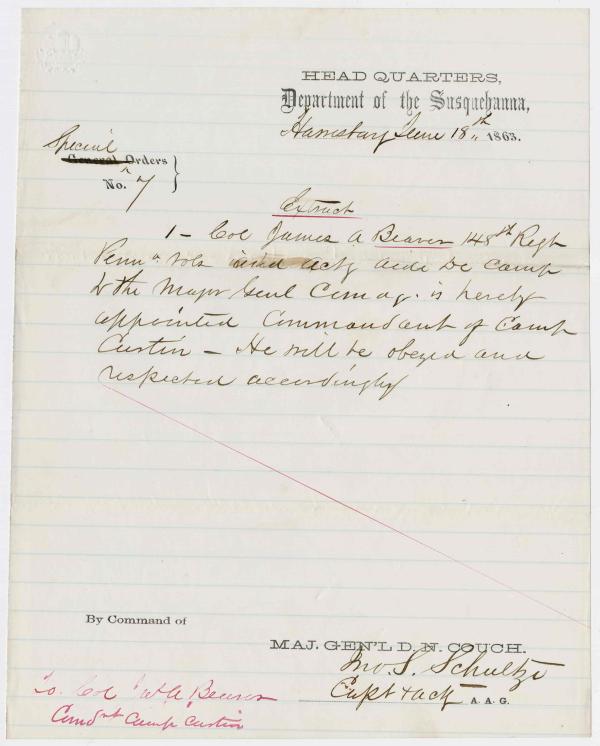 HEAD QUARTERS,
Department of the Susquehanna,
Harrisburg June 18th 1863.
Special
General Orders
No. 7
Extract
1 - Col James A Beaver 148th Regt
Penna Vols and actg aide De Camp
to the Major Genl Comdg. is hereby
appointed Commandant of Camp
Curtin - He will be obeyed and
respected accordingly
By Command of
MAJ. GEN'L D. N. COUCH.
Jno. S. Schultze
Capt & actg A. A. G.
To. Col Jas A Beaver
Comdnt Camp Curtin